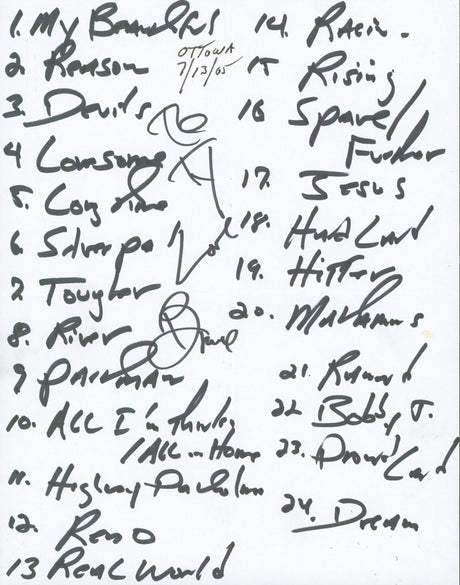 1. My Beautiful
OTTOWA
7/13/05
2. Reason
3. Devils
4 Lonesome
5. Long Time
6. Silver pa
7 Tougher
8. River
9 Part man
10. ALL I'm thinkin
/ALL in Home
11. Highway Patrolman
12. Reno
13 Real World
14. Racin.
15 Rising
16 Spare/
Further
17. Jesus
18. Land
19. Hitter
20. Matamoros
21. Ramrod
22 Bobby J.
23. Land
24. Dream